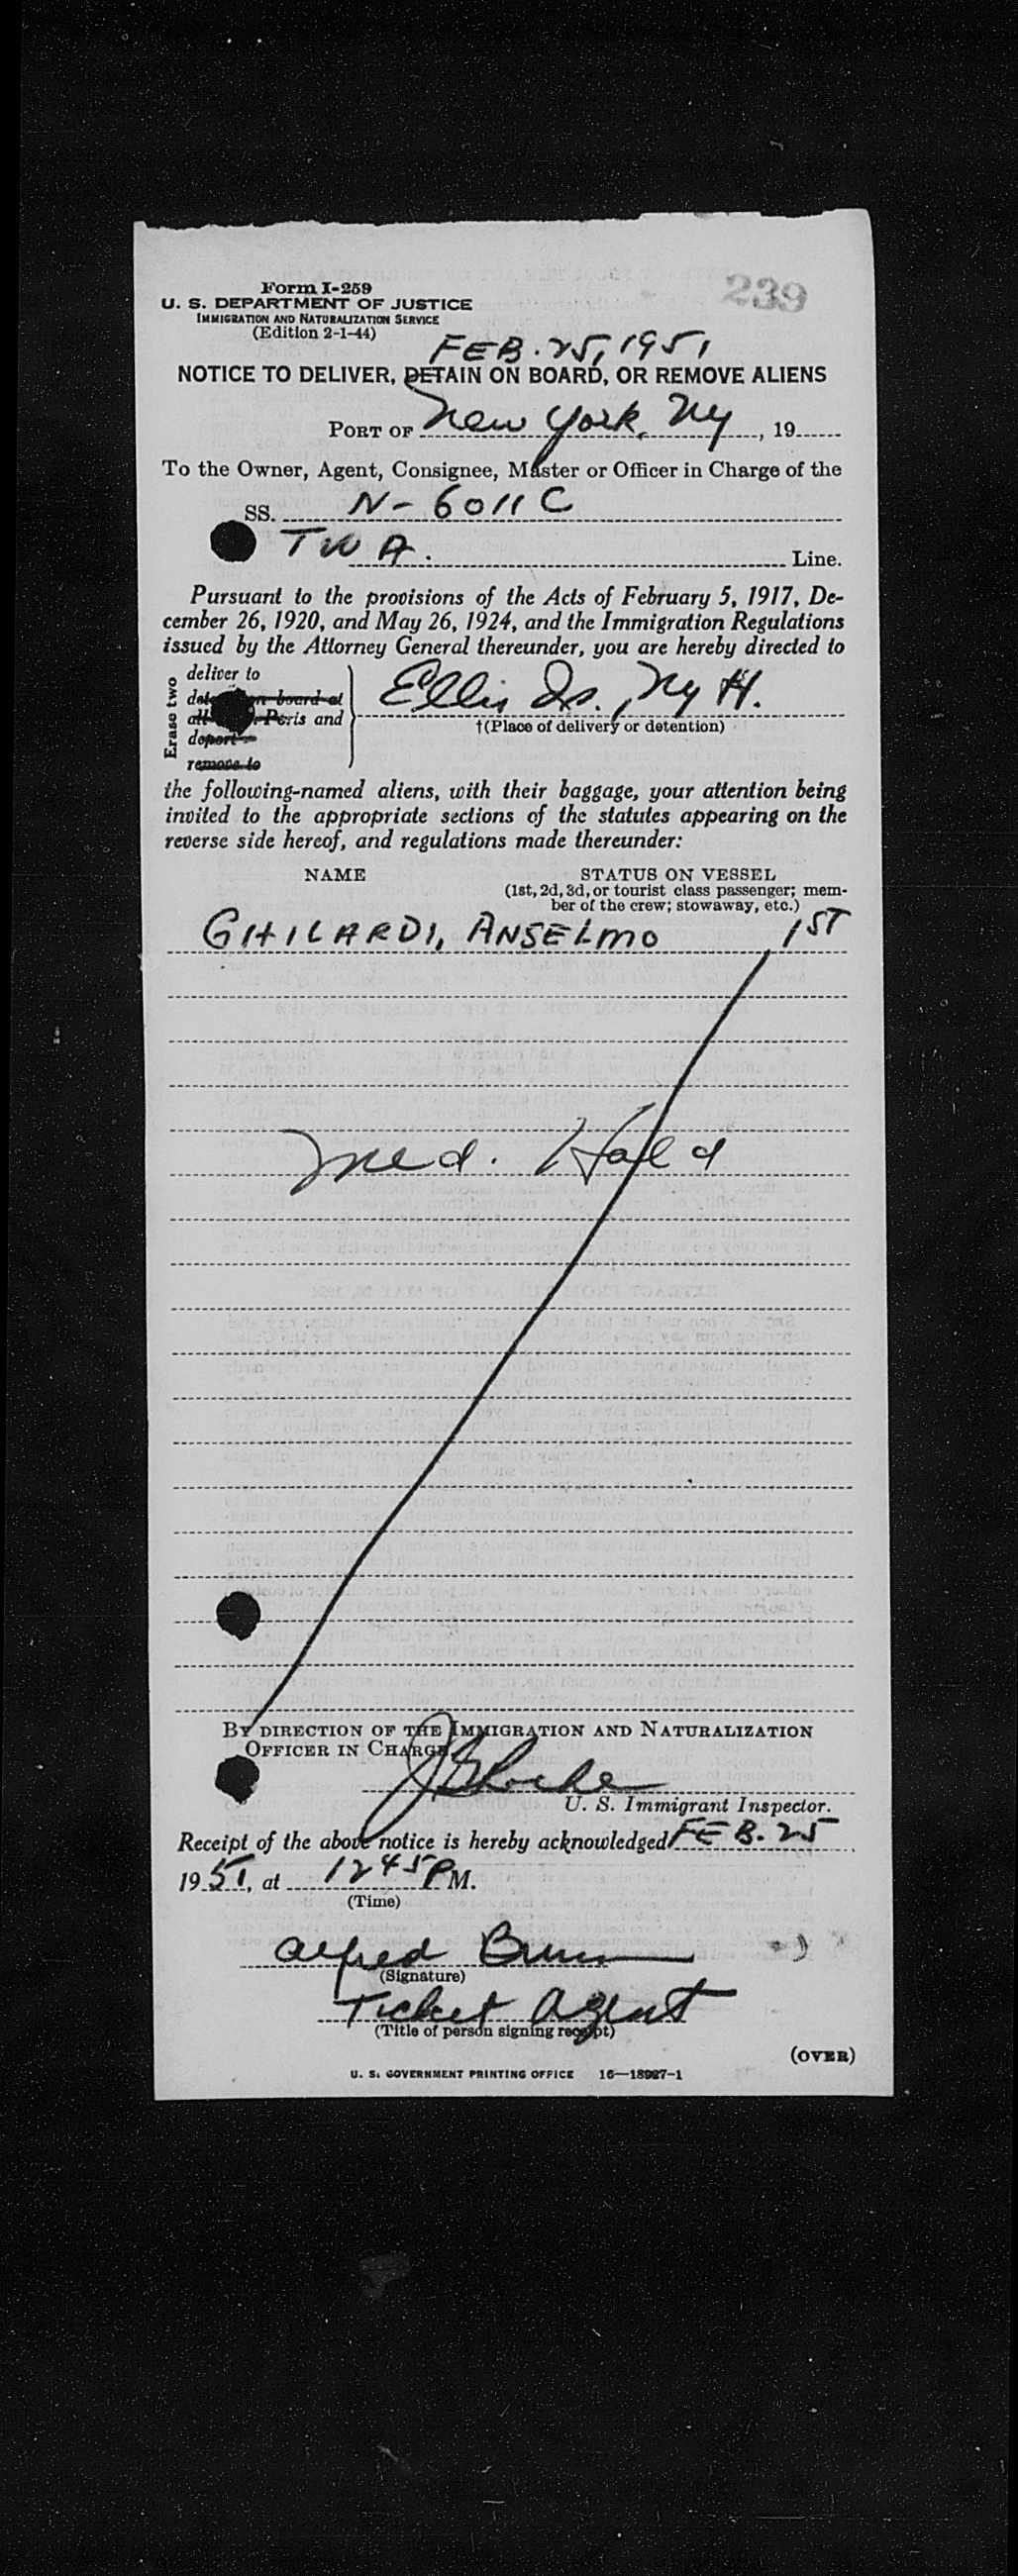 239
Form I-259
U. S. DEPARTMENT OF JUSTICE
IMMIGRATION AND NATURALIZATION SERVICE
(Edition 2-1-44)
FEB. 25, 1951
NOTICE TO DELIVER, DETAIN ON BOARD, OR REMOVE ALIENS
PORT OF New York, Ny, 19
To the Owner, Agent, Consignee, Master or Officer in Charge of the
SS. N-6011C
TWA. Line.
Pursuant to the provisions of the Acts of February 5, 1917, De-
cember 26, 1920, and May 26, 1924, and the Immigration Regulations
issued by the Attorney General thereunder, you are hereby directed to
Erase two
deliver to
board at
Paris and
deport
remove to
Ellis Is., Ny H.
†(Place of delivery or detention)
the following-named aliens, with their baggage, your attention being
invited to the appropriate sections of the statutes appearing on the
reverse side hereof, and regulations made thereunder:
NAME STATUS ON VESSEL
(1st, 2d, 3d, or tourist class passenger; mem-
ber of the crew; stowaway, etc.)
GHILARDI, ANSELMO 1ST
Med. Hold
BY DIRECTION OF THE IMMIGRATION AND NATURALIZATION
OFFICER IN CHARGE
U. S. Immigrant Inspector.
Receipt of the above notice is hereby acknowledged FEB. 25
1951, at 1245 PM.
(Time)
Alfred
(Signature)
Ticket Agent
(Title of person signing receipt)
(OVER)
U. S. GOVERNMENT PRINTING OFFICE 16—18927-1